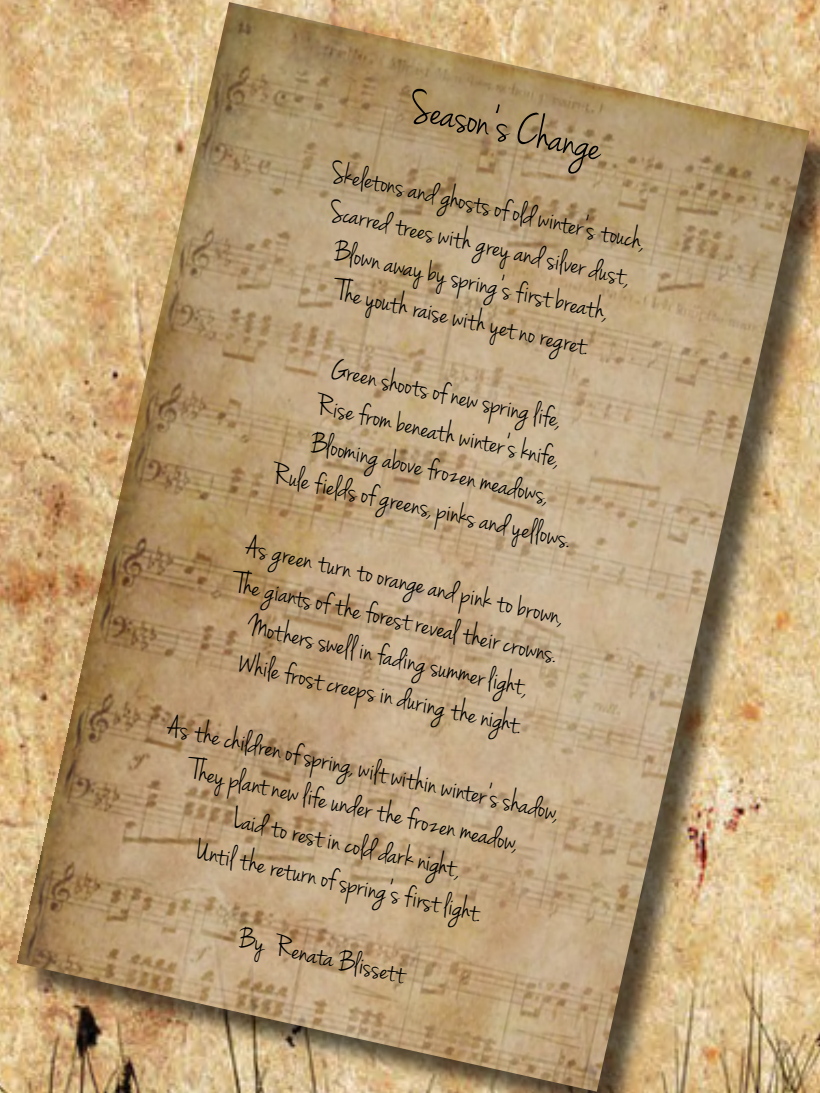 Season's Change
Skeletons and ghosts of old winter's touch,
Scarred trees with grey and silver dust,
Blown away by spring's first breath,
The youth raise with yet no regret.
Green shoots of new spring life,
Rise from beneath winter's knife,
Blooming above frozen meadows,
Rule fields of greens, pinks and yellows.
As green turn to orange and pink to brown,
The giants of the forest reveal their crowns.
Mothers swell in fading summer light,
While frost creeps in during the night.
As the children of spring, wilt within winter's shadow,
They plant new life under the frozen meadow,
Laid to rest in cold dark night,
Until the return of spring's first light.
By Renata Blissett